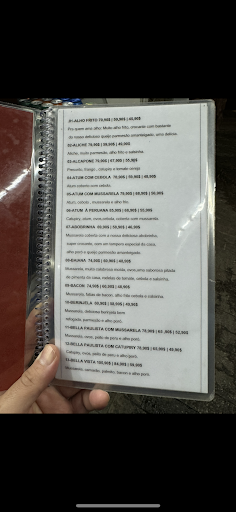 01-ALHO FRITO 70,90$ | 59,90$ | 49,90$
Pra quem ama alho; Muito alho frito, crocante com bastante
do nosso delicioso queijo parmesão amanteigado, uma delícia.
02-ALICHE 79,90$ | 59,90$ | 49,90$
Aliche, muito parmesão, alho frito e salsinha.
03-ALCAPONE 79,90$ | 67,90$ | 55,90$
Presunto, frango, catupiry e tomate cereja
04-ATUM COM CEBOLA 79,90$ | 59,90$ | 49,90$
Atum coberto com cebola.
05-ATUM COM MUSSARELA 79,90$ | 68,90$ | 58,90$
Atum, cebola, mussarela e alho frito.
06-ATUM Á PERUANA 85,90$ | 68,90$ | 55,90$
Catupiry, atum, ovos, cebola, coberto com mussarela.
07-ABOBRINHA 69,90$ | 58,90$ | 46,90$
Mussarela coberta com a nossa deliciosa abobrinha,
super crocante, com um tempero especial da casa,
alho poró e queijo parmesão amanteigado.
08-BAIANA 74,90$ | 60,90$ | 49,90$
Mussarela, muita calabresa moída,
de pimenta da casa, rodelas de tomate, cebola e salsinha.
09-BACON 74,90$ | 60,90$ | 49,90$
Mussarela, fatias de bacon, alho frito cebola e salsinha.
10-BERINJELA
Mussarela, deliciosa berinjela bem
refogada, parmesão e alho poró.
11-BELLA PAULISTA COM MUSSARELA 78,90$ | 65,90$ | 52,90$
Mussarela, ovos, peito de peru e alho poró.
12-BELLA PAULISTA COM CATUPIRY 78,90$ | 65,90$ | 49,90$
Catupiry, ovos, peito de peru e alho poró.
13-BELLA VISTA 100,90$ | 84,90$ | 69,90$
Mussarela, camarão, palmito, bacon e alho poró.